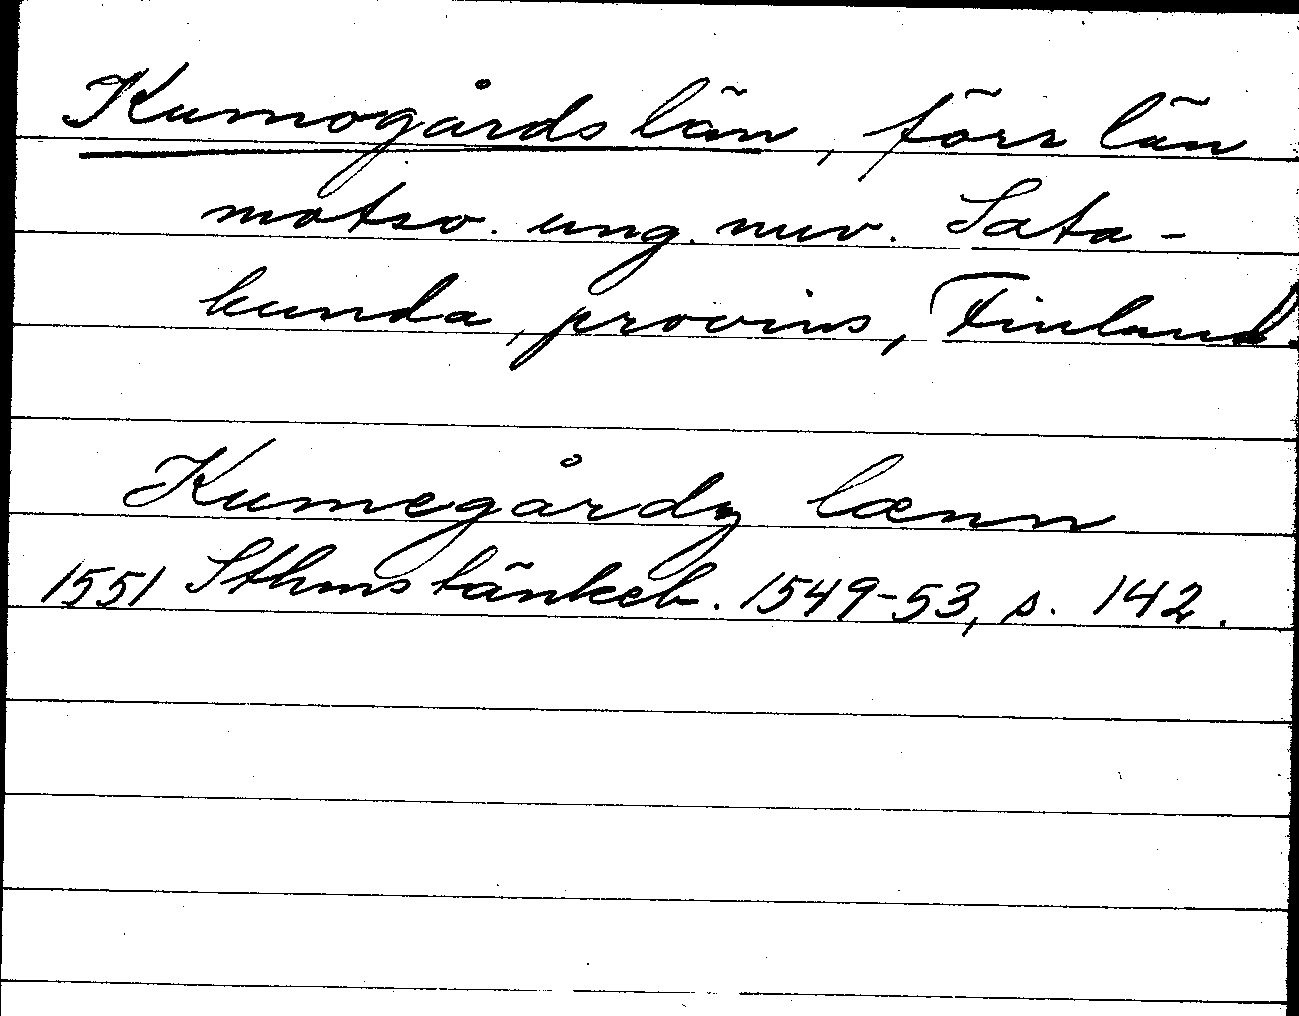 Kumogårds län, förr län
motsv. ung. nuv. Sata-
kunda, provins, Finland.
Kumegårdz lænn
1551 Sthms tänkeb. 1549-53, s. 142.